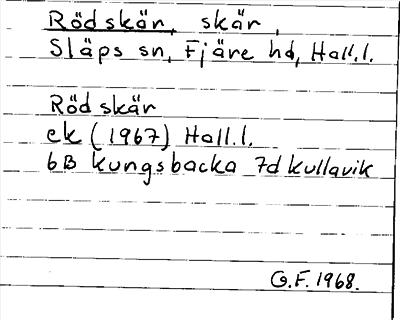 Rödskär, skär,
Släps sn, Fjäre hd, Hall.l.
Rödskär
ek (1967) Hall.l.
6B Kungsbacka 7d Kullavik
G.F. 1968.